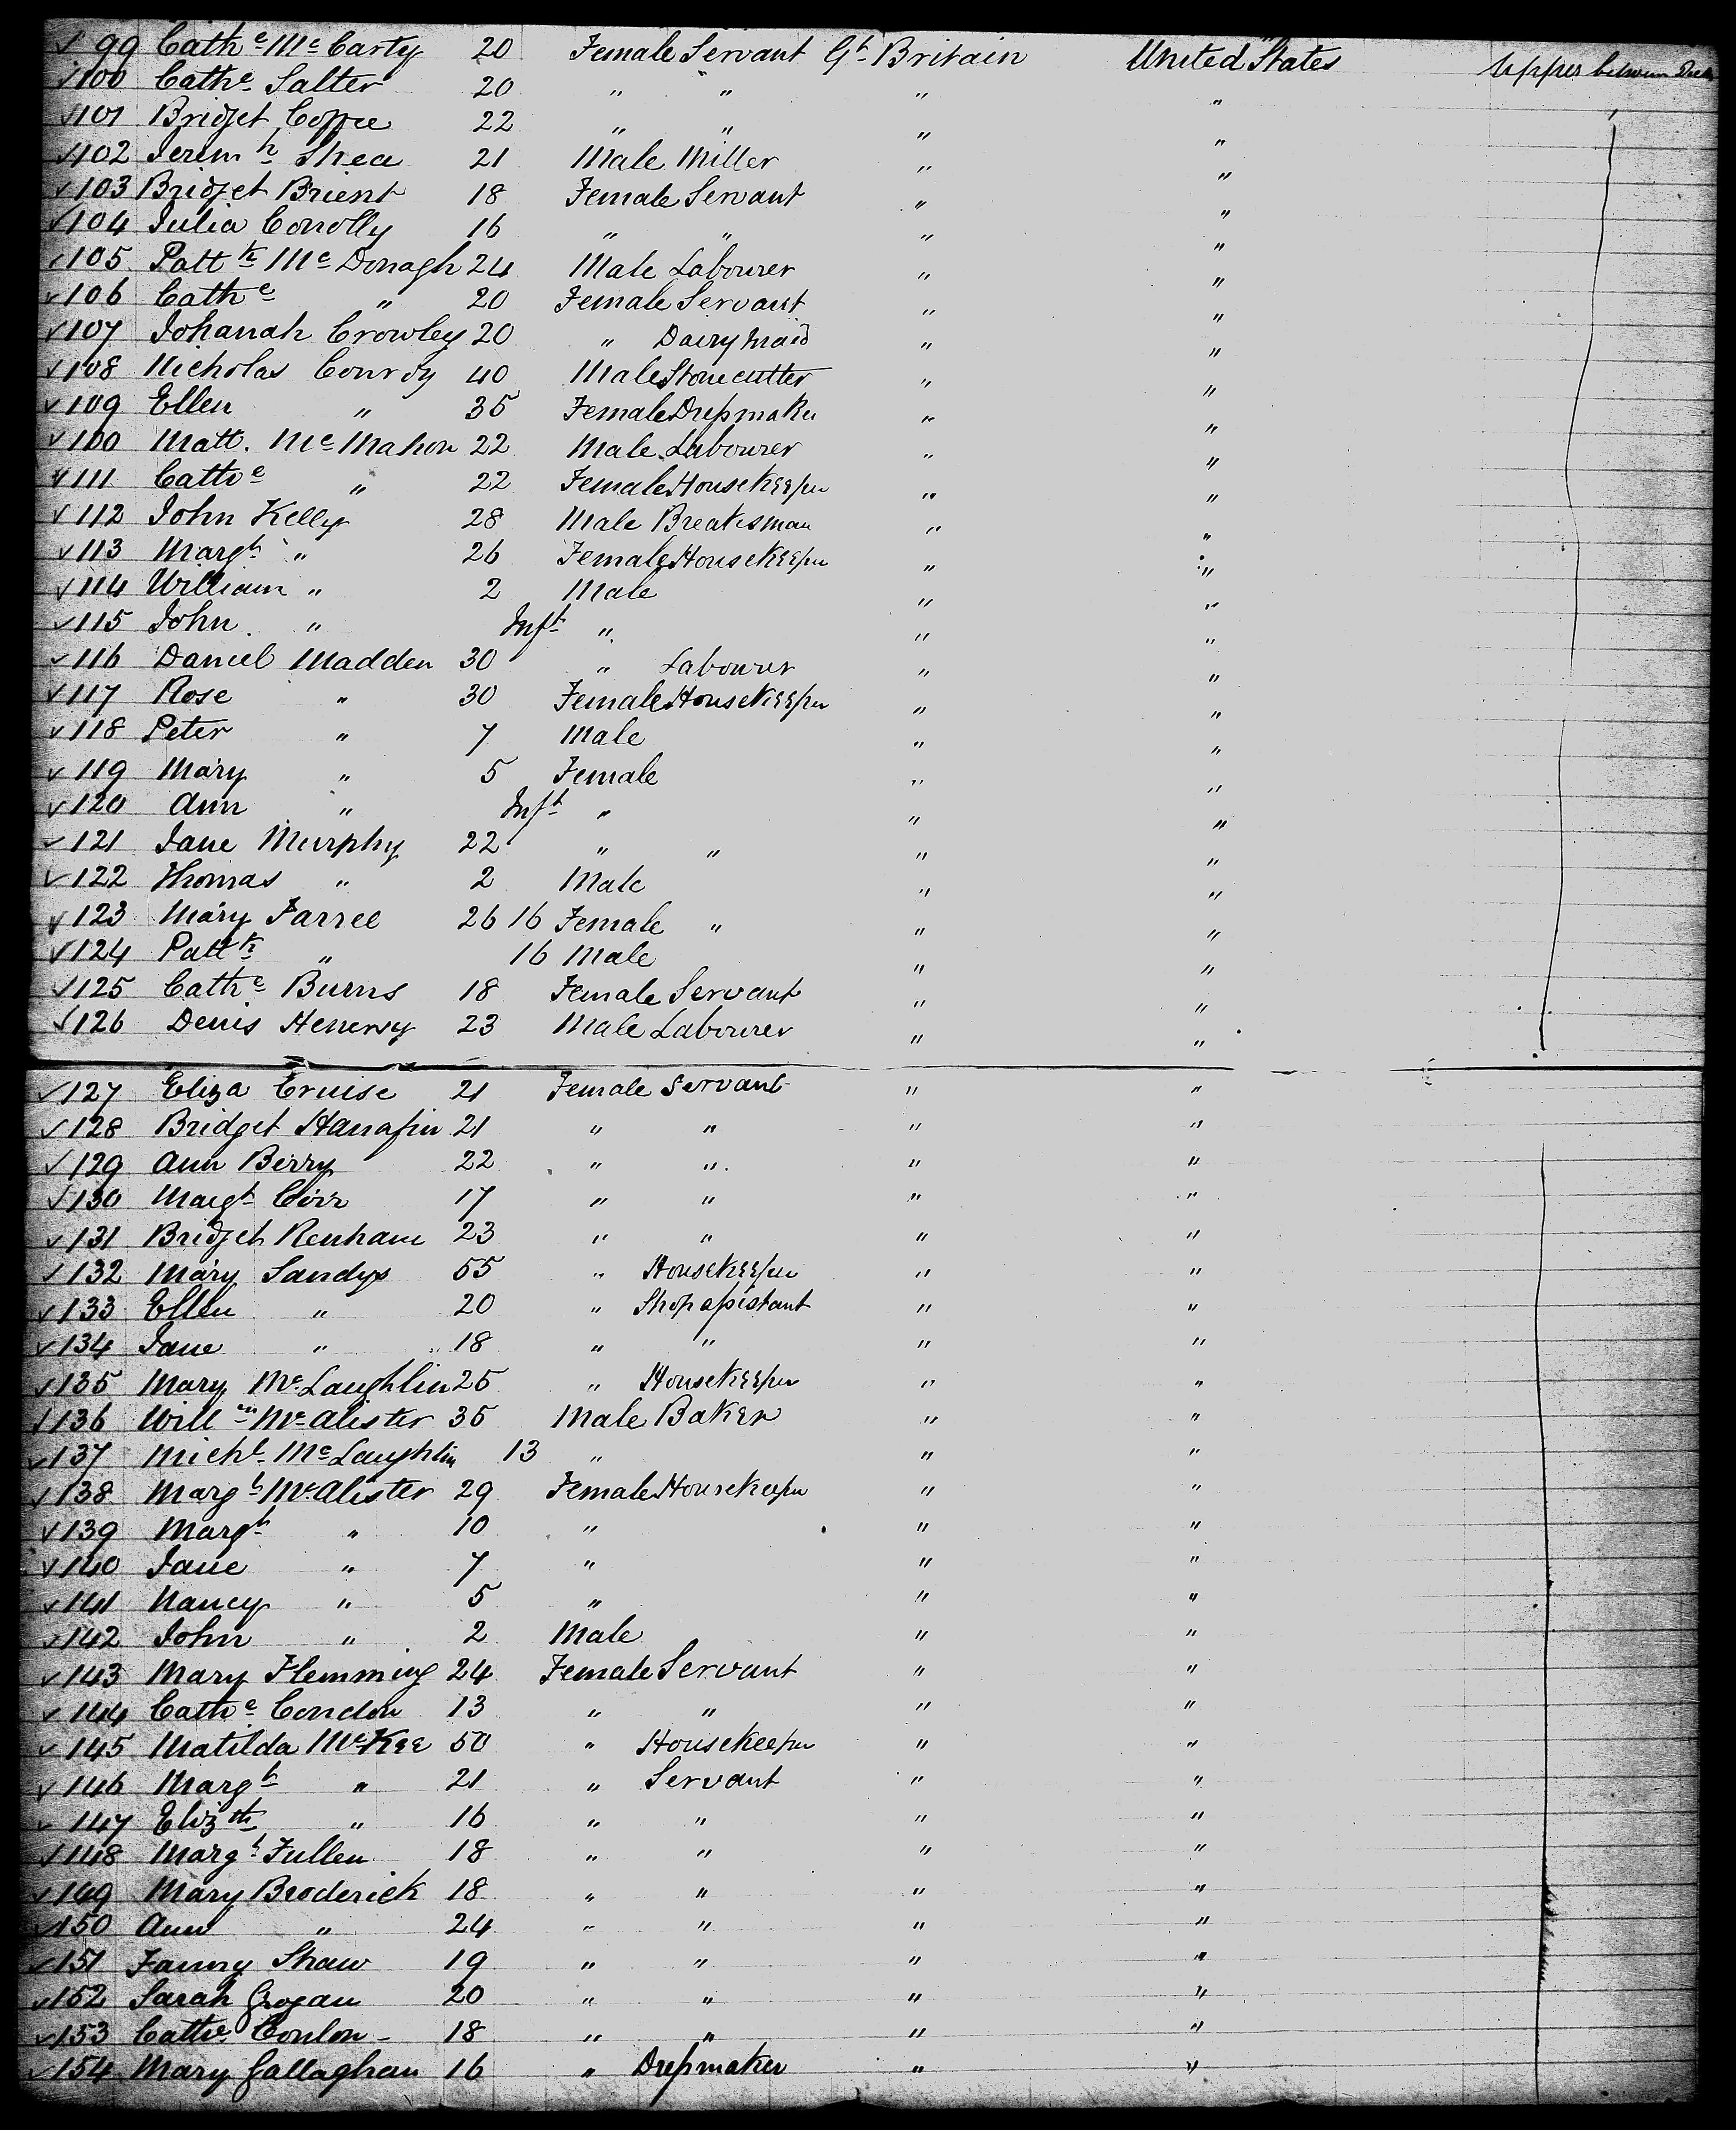 ✓ 99 Cathe McCarty 20 Female Servant Gt Britain United States Upper between Decks
✓100 Cathe Salter 20 " " " "
✓101 Bridget Coffee 22 " " " "
✓102 Jeremh Shea 21 Male Miller " "
✓103 Bridget Brient 18 Female Servant " "
✓104 Julia Conolly 16 " " " "
✓105 Pattk McDonagh 24 Male Labourer " "
✓106 Cathe " 20 Female Servant " "
✓107 Johanah Crowley 20 " Dairymaid " "
✓108 Nicholas Conroy 40 Male Stonecutter " "
✓109 Ellen " 35 Female Dressmaker " "
✓100 Matt. McMahon 22 Male Labourer " "
✓111 Cathe " 22 Female Housekeeper " "
✓112 John Kelly 28 Male Breaksman " "
✓113 Margt " 26 Female Housekeeper " "
✓114 William " 2 Male " "
✓115 John " Inft " " "
✓116 Daniel Madden 30 " Labourer " "
✓117 Rose " 30 Female Housekeeper " "
✓118 Peter " 7 Male " "
✓119 Mary " 5 Female " "
✓120 Ann " Inft " " "
✓121 Jane Murphy 22 " " " "
✓122 Thomas " 2 Male " "
✓123 Mary Farree 26 16 Female " " "
✓124 Pattk " 16 Male " "
✓125 Cathe Burns 18 Female Servant " "
✓126 Denis Henersy 23 Male Labourer " "
✓127 Eliza Cruise 21 Female Servant " "
✓128 Bridget Hanafin 21 " " " "
✓129 Ann Berry 22 " " " "
✓130 Margt Cirr 17 " " " "
✓131 Bridget Renham 23 " " " "
✓132 Mary Sandys 55 " Housekeeper " "
✓133 Ellen " 20 " Shop assistant " "
✓134 Jane " 18 " " " "
✓135 Mary McLaughlin 25 " Housekeeper " "
✓136 Willm McAlister 35 Male Baker " "
✓137 Michl McLaughlin 13 " " "
✓138 Margt McAlister 29 Female Housekeeper " "
✓139 Margt " 10 " " "
✓140 Jane " 7 " " "
✓141 Nancy " 5 " " "
✓142 John " 2 Male " "
✓143 Mary Flemming 24 Female Servant " "
✓144 Cathe Condon 13 " " " "
✓145 Matilda McKee 50 " Housekeeper " "
✓146 Margt " 21 " Servant " "
✓147 Elizth " 16 " " " "
✓148 Margt Fullen 18 " " " "
✓149 Mary Broderick 18 " " " "
✓150 Ann " 24 " " " "
✓151 Fanny Shaw 19 " " " "
✓152 Sarah Grogan 20 " " " "
✓153 Cathe Conlon 18 " " " "
✓154 Mary Gallaghan 16 " Dressmaker " "